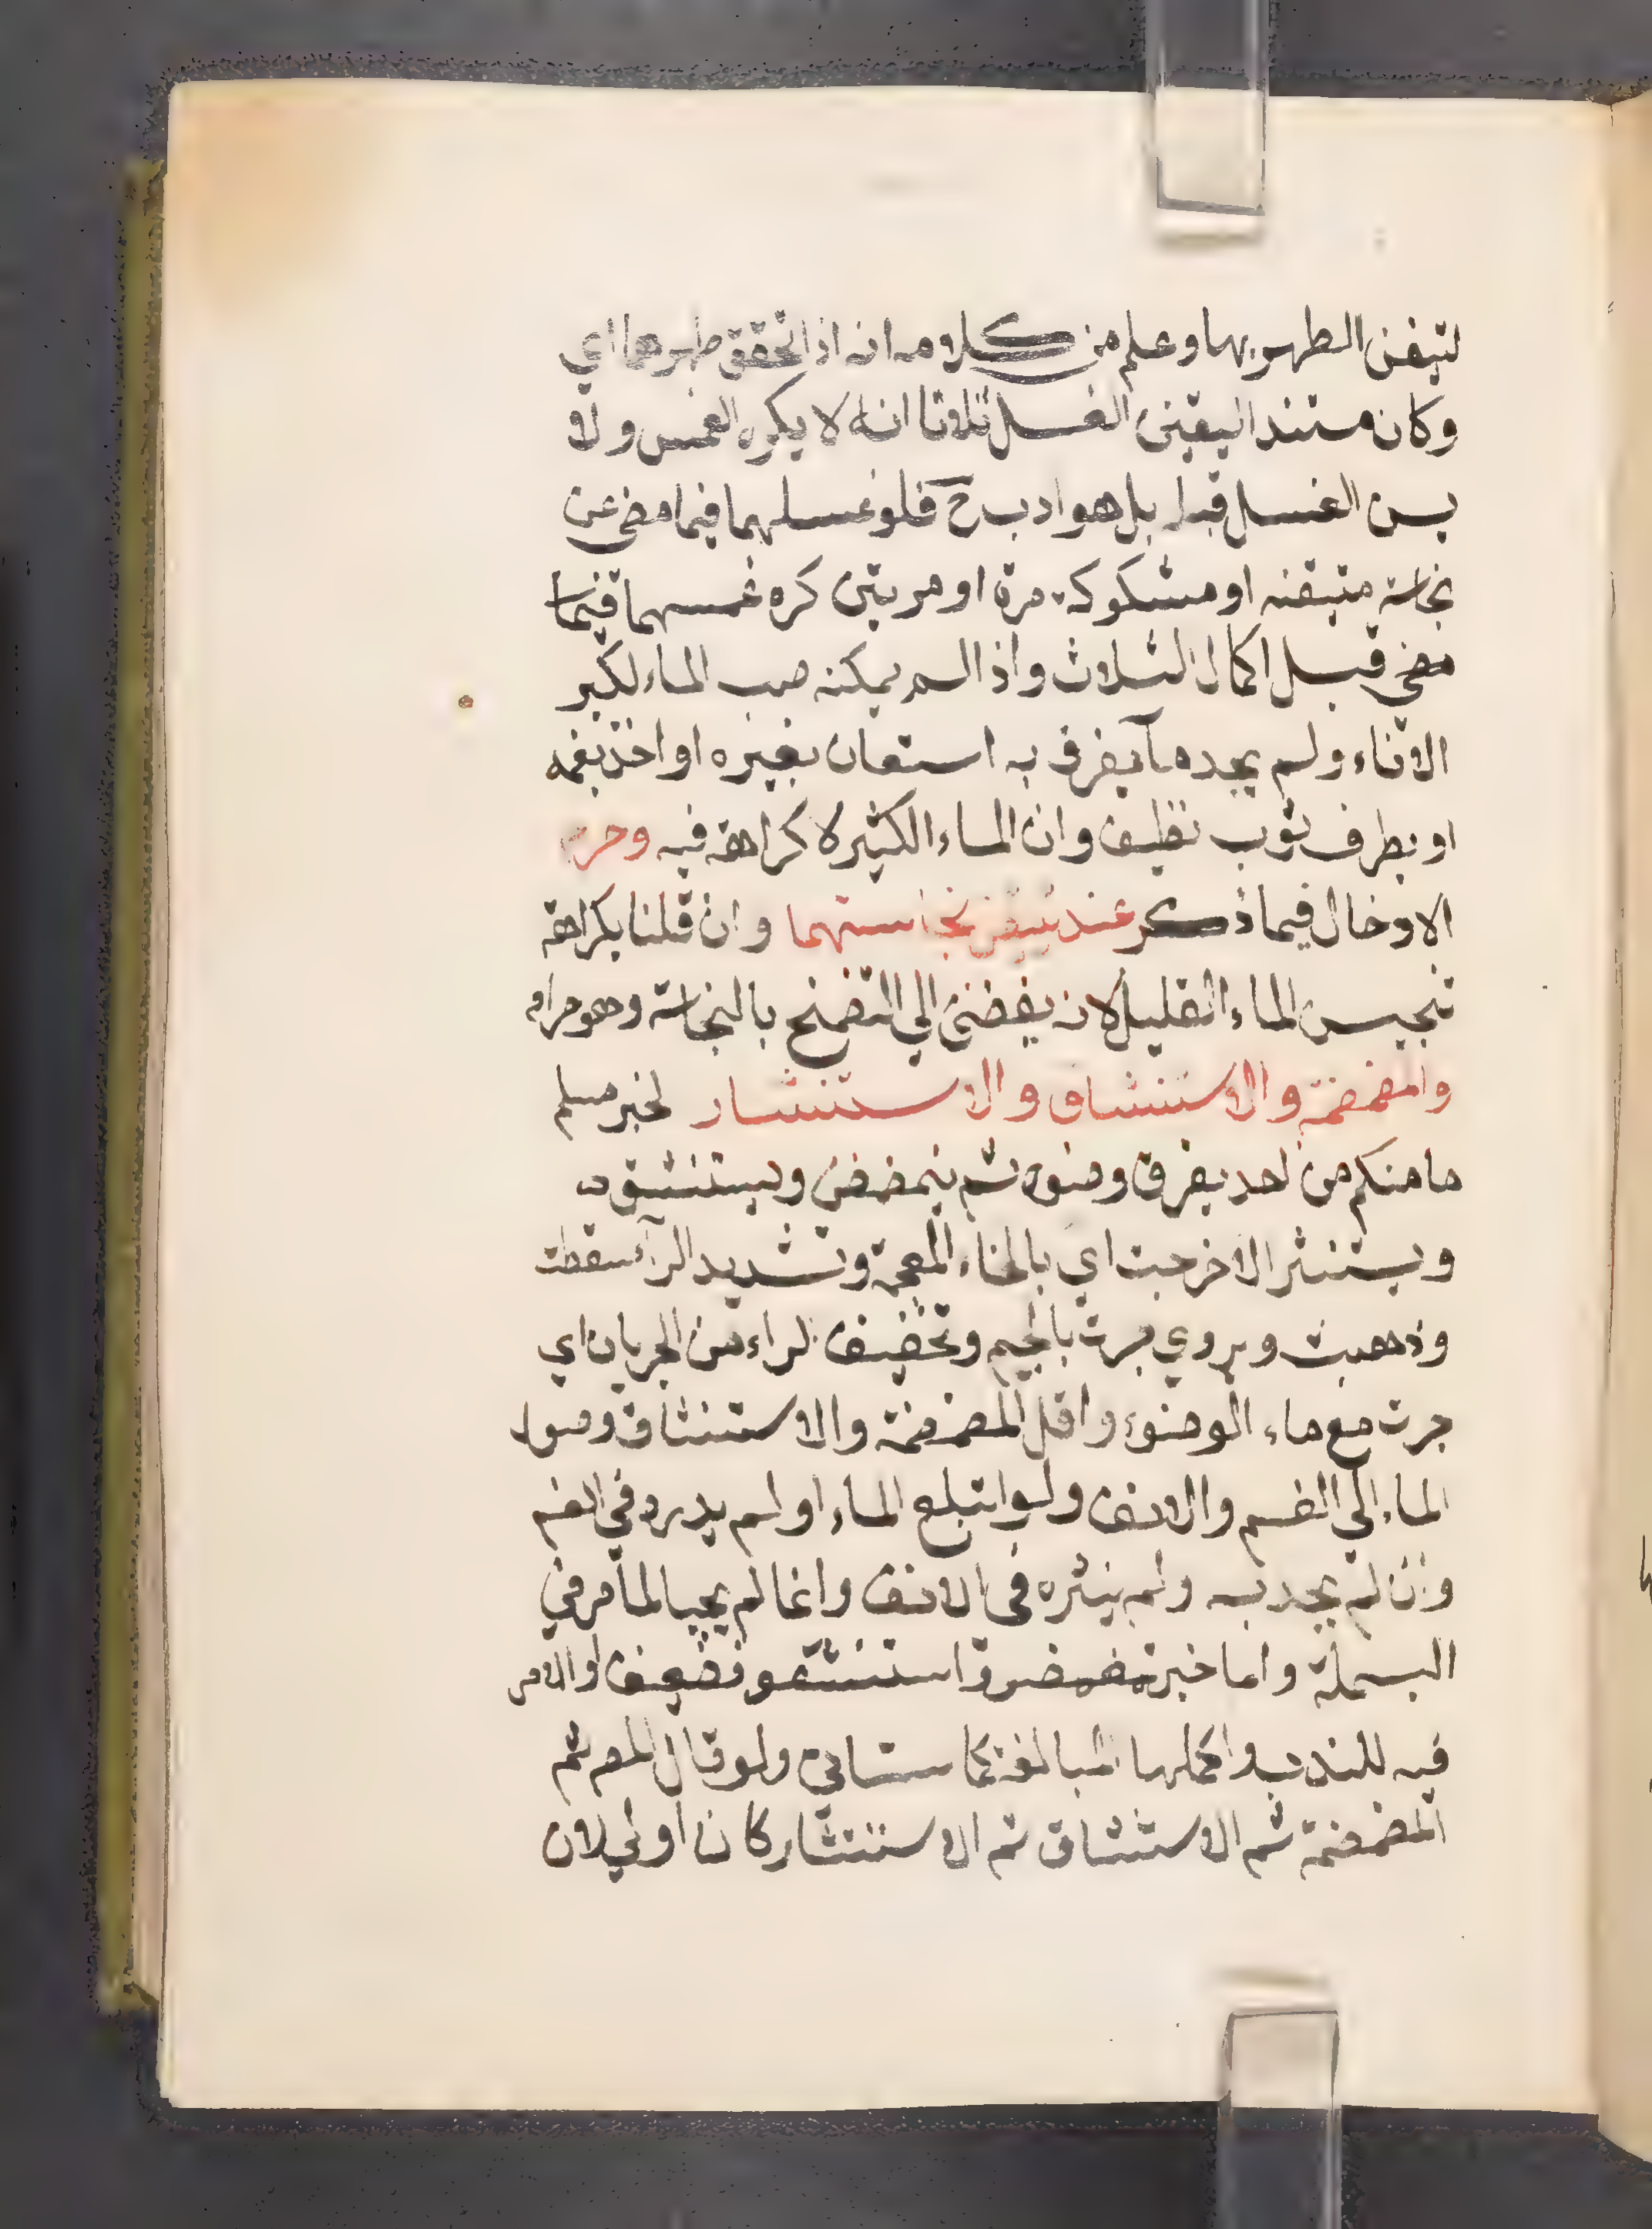 لتيقن الطهر بها وعلم من كلامه انه اذا تحقق طهرهما اي
وكان مستند اليقين الغسل ثلاثا انه لا يكره الغمس ولا
يسن الغسل قبل بل هو ادب ح فلو غسلهما فيما مضى عن
نجاسة متيقنه او مشكوكه مرة او مرتين كره غمسهما فيما
مضى قبل اكمال الثلاث واذا لم يمكنه صب الماء لكبر
الاناء ولم يجد ما يغرف به استعان بغيره او اخذ بفمه
او بطرف ثوب نظيف وان الماء الكثير لا كراهة فيه وحرم
الادخال فيما ذكر عند تيقن نجاستهما وان قلنا بكراهة
تنجيس الماء القليل لانه يفضى الي التضمخ بالنجاسة وهو حرام
والمضمضة والاستنشاق والاستنثار لخبر مسلم
ما منكم من احد يقرب وضوه ثم يتمضمض ويستنشق
ويستنثر الا خرجت اي بالخاء المعجمة وتشديد الرآء سقطت
وذهبت ويروي جرت بالجيم وتخفيف الراء من الجريان اي
جرت مع ماء الوضوء واقل المضمضة والاستنشاق وصول
الماء الي الفم والانف ولو ابتلع الماء او لم يدره في الفم
وان لم يجد به ولم ينثره في الانف وانما لم يجبا لما مر في
البسملة واما خبر تمضمضو واستنشقو فضعيف او الامر
فيه للندب واكملها المبالغة كما ستاتي ولو قال المص ثم
المضمضة ثم الاستنشاق ثم الاستنثار كان اولي لان